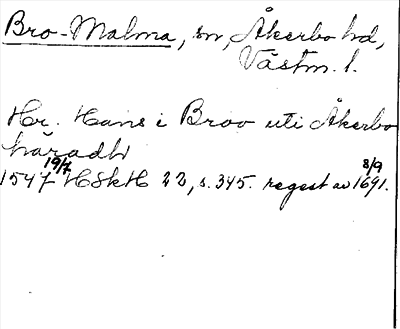 Bro-Malma, sn, Åkerbo hd,
Västm. l.
Hr. Hans i Broo uti Åkerbo
häradh
1547 19/7 HSkH 22, s. 345. regest av 8/9 1691.